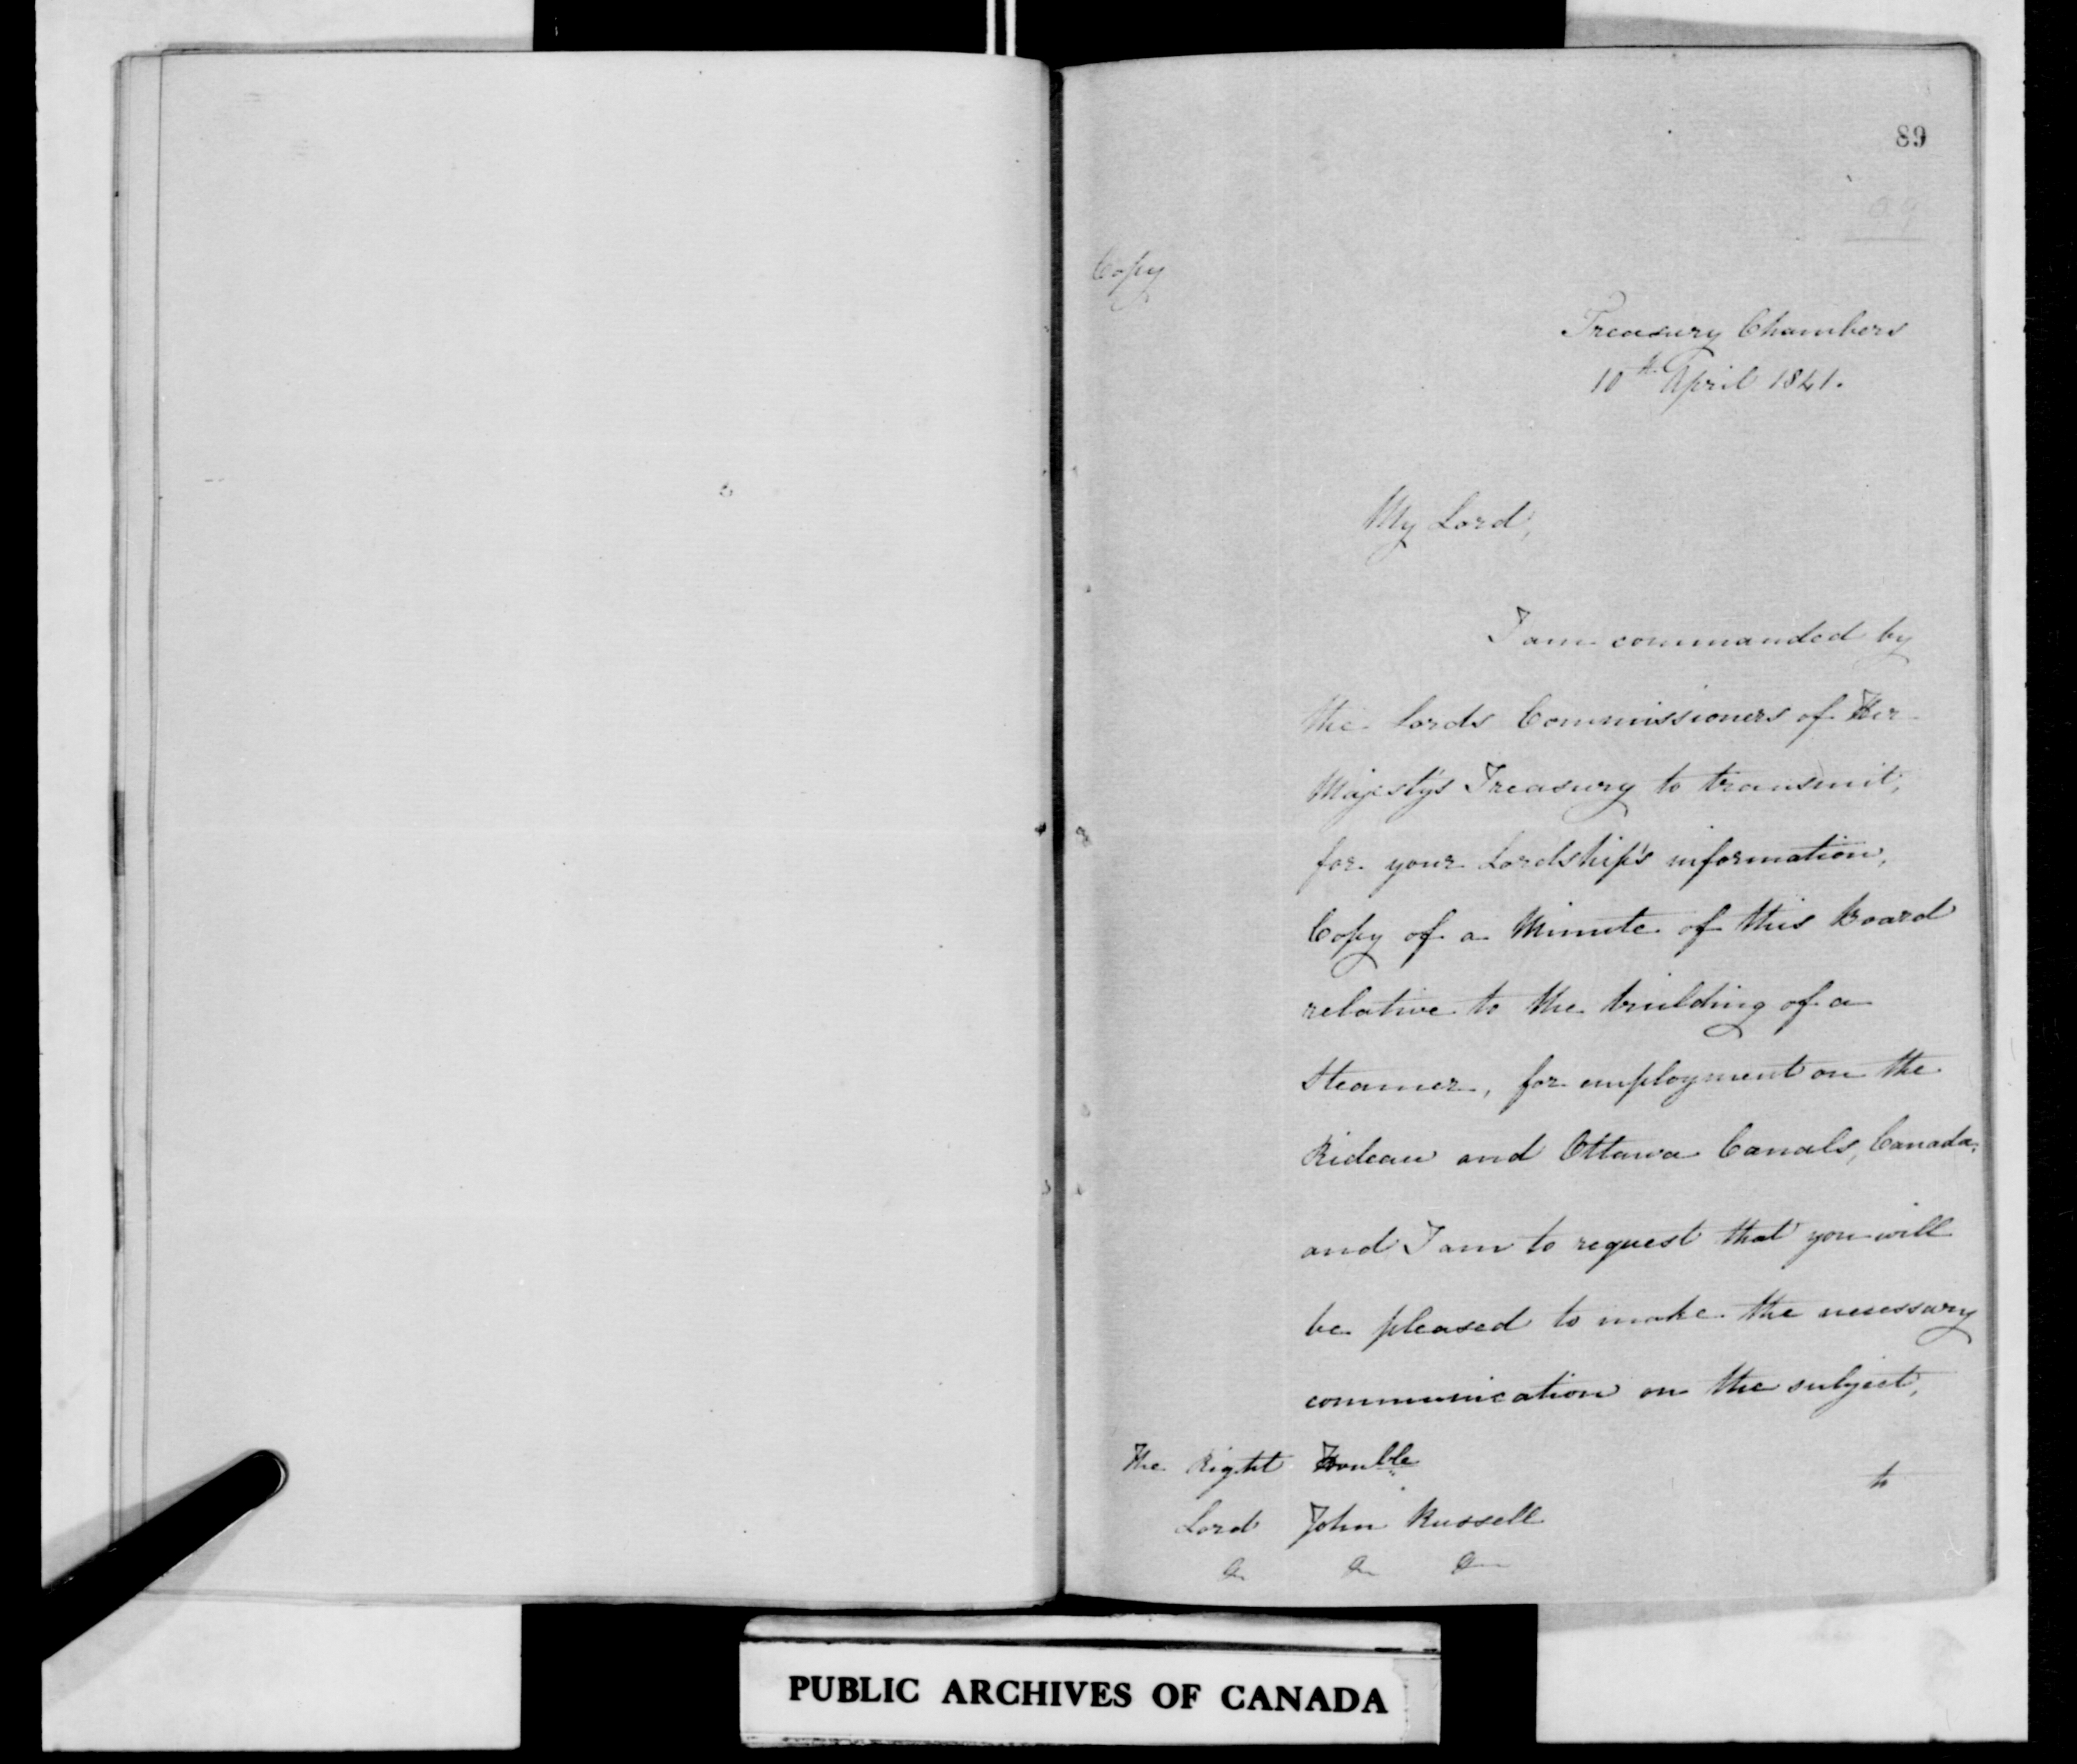 89
Copy
Treasury Chambers
10th April 1841.
My Lord,
I am commanded by
the Lords Commissioners of Her
Majesty's Treasury to transmit,
for your Lordship's information,
Copy of a Minute of this Board
relative to the building of a
Steamer, for employment on the
Rideau and Ottawa Canals, Canada;
and I am to request that you will
be pleased to make the necessary
communication on the subject,
to
The Right Honble
Lord John Russell
&c &c &c
PUBLIC ARCHIVES OF CANADA